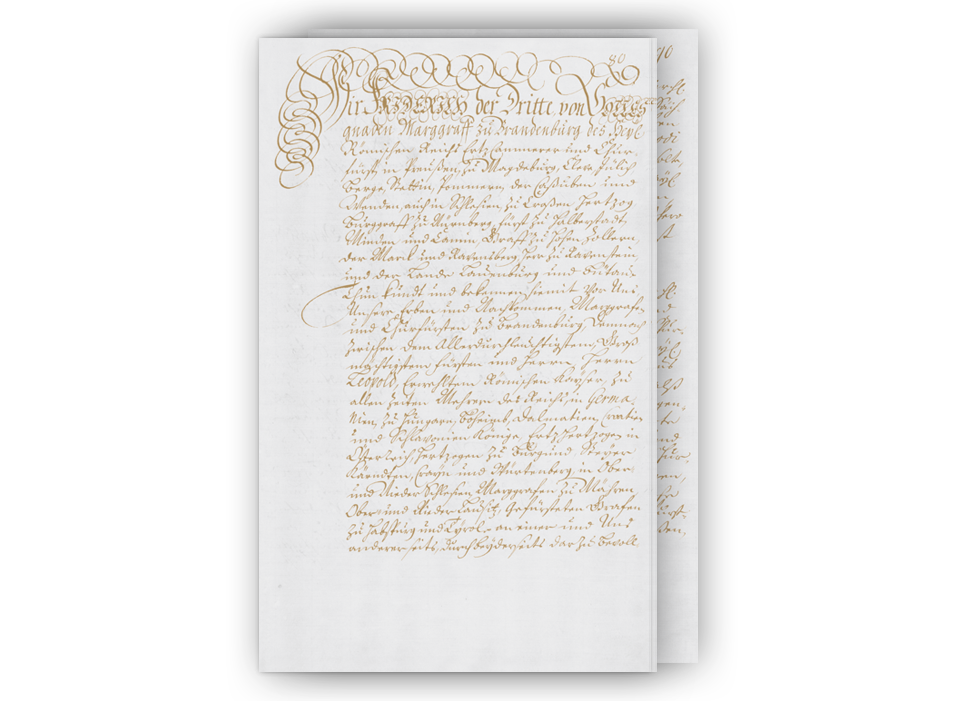 80
Wir FRIDERICH der Dritte von Gottes
gnaden Marggraff zu Brandenburg des Heyl.
Römischen Reichs Ertz Cammerer und Chur-
fürst, in Preußen, zu Magdeburg, Cleve, Jülich
Berge, Stettin, Pommern, der Caßuben und
Wenden, auch in Schlesien, zu Croßen Hertzog
Burggraff zu Nürnberg, Fürst zu Halberstadt
Minden und Camin, Graff zu Hohen Zollern,
der Marck und Ravensberg, Herr zu Ravenstein
und der Lande Lauenburg und Bütau.
Thun kundt und bekennen hiemit vor Uns
Unsere Erben und Nachkommen Marggrafen
und Churfürsten zu Brandenburg, demnach
zwischen dem Allerdurchlauchtigsten, Groß-
mächtigsten Fürsten und Herrn, Herrn
Leopold, Erwehltem Römischen Kayser, zu
allen Zeiten Mehrern des Reichs, in Germa-
nien, zu Hungarn, Böheimb, Dalmatien, Croatien
und Schlavonien Könige, Ertzhertzogen in
Österreich, Hertzogen zu Burgund, Steyer
Kärndten, Crayn und Würtenberg, in Ober-
und Nieder Schlesien, Marggrafen zu Mähren
Ober- und Nieder Lausitz, Gefürsteten Grafen
zu Habspurg und Tyrol, an einer- und Uns
andererseits, durch beyderseits darzu bevoll-